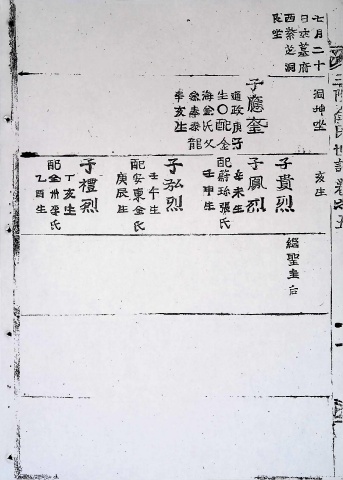 七月二十
日忌墓府
西蔡芝洞
艮坐
洞坤坐
子應奎
通政庚子
生〇配金
海金氏父
辛亥生
亥生
子貴烈
繼聖圭后
子鳳烈
辛未生
配蔚珍張氏
壬申生
子泓烈
壬午生
配安東金氏
庚辰生
子禮烈
丁亥生
配全州李氏
乙酉生